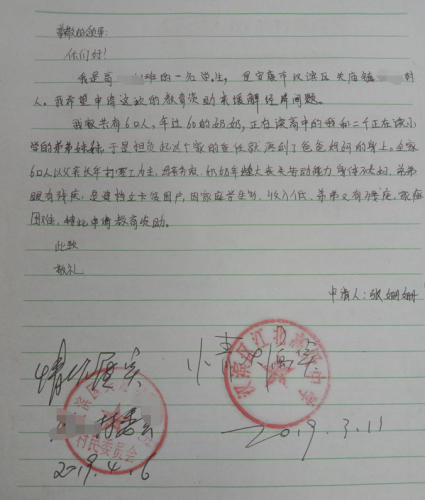 尊敬的领导:
你们好!
我是高 班的一名学生,是安康市汉滨区关庙镇 村
人。我希望申请这次的教育资助来缓解经济问题。
我家共有6口人,年过60的奶奶,正在读高中的我和二个正在读小
学的弟弟妹妹,于是担负起这个家的责任就落到了爸爸妈妈的身上。全家
6口人以父亲长年打零工为主,母亲务农,奶奶年纪大丧失劳动能力,身体不太好,弟弟
眼有残疾,是建档立卡贫困户,因家庭劳力少,收入低,弟弟又有残疾,家庭
困难,特此申请教育资助。
此致
敬礼
申请人:张姗姗
情况属实
情况属实
村委会
村民委员会
2019.4.6
2019.3.11